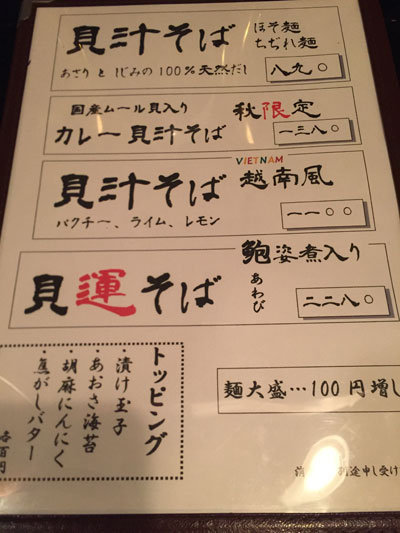 貝汁そば
ほそ麺
ちぢれ麺
あさりとしじみの100%天然だし
八九〇
国産ムール貝入り
秋限定
カレー貝汁そば
一三八〇
VIETNAM
貝汁そば
越南風
パクチー、ライム、レモン
一一〇〇
貝運そば
鮑姿煮入り
あわび
二二八〇
トッピング
・漬け玉子
・あおさ海苔
・胡麻にんにく
・焦がしバター
各百円
麺大盛…100円増し
消
途申し受け